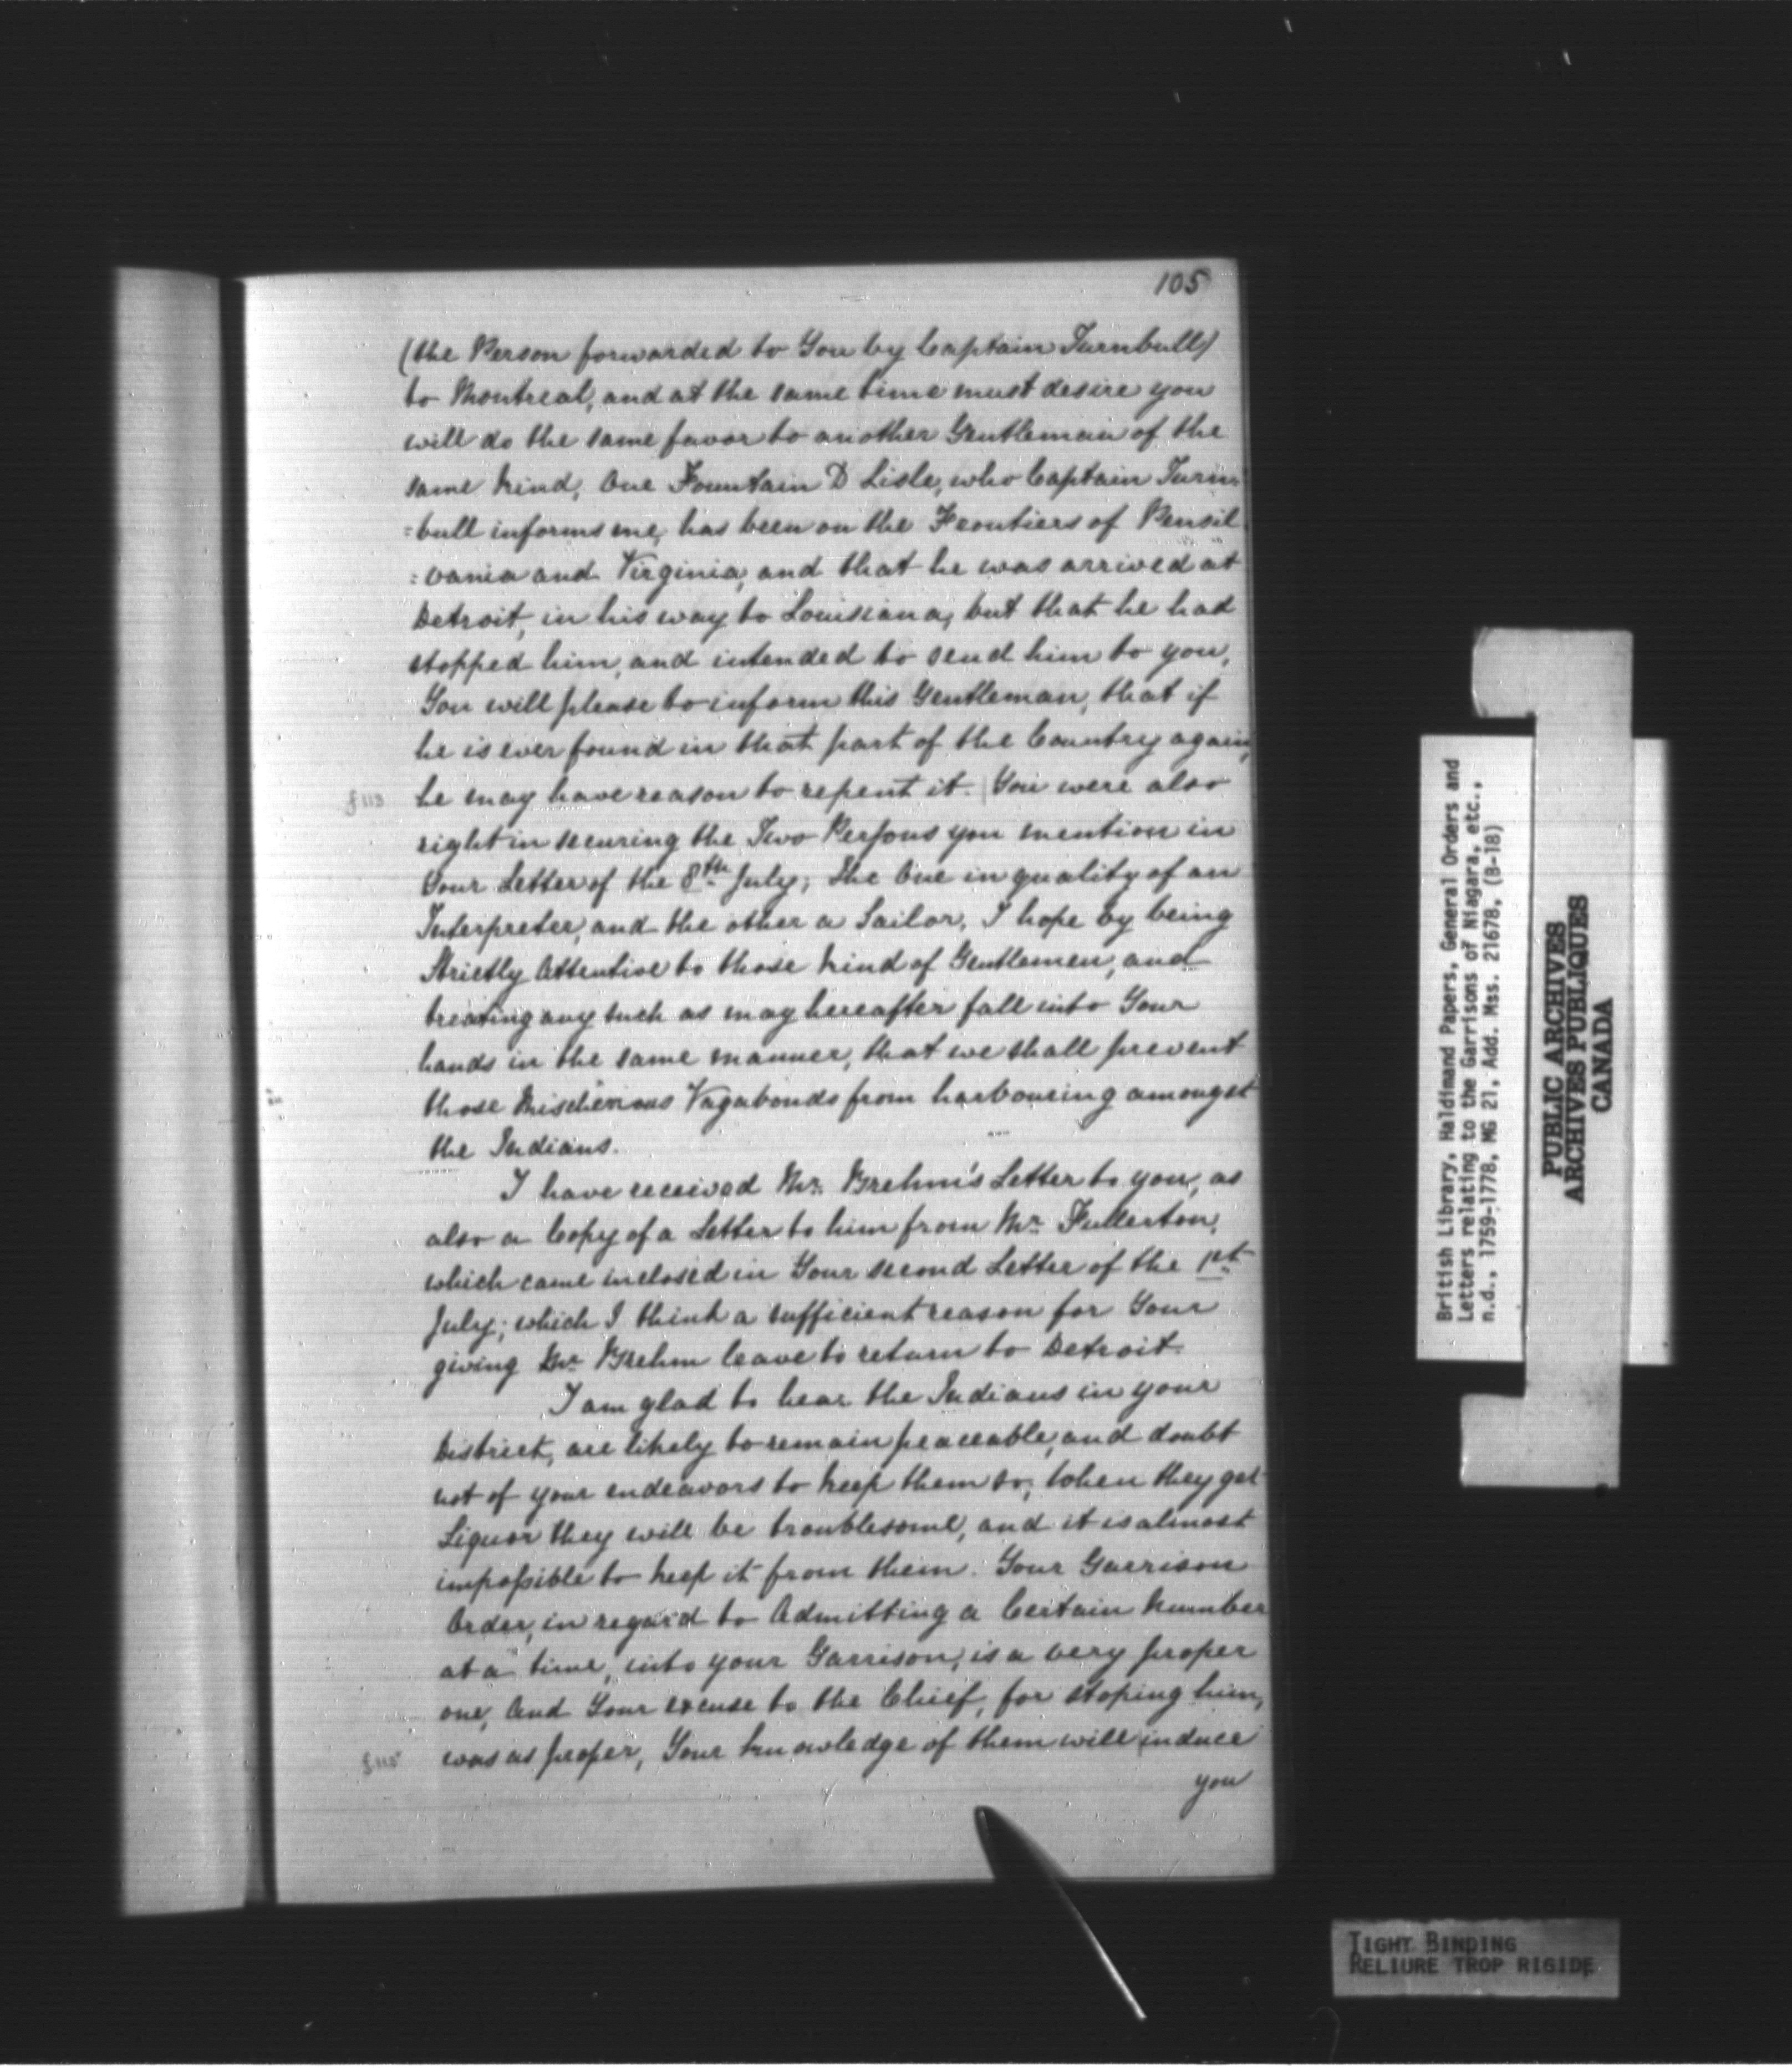 105
(the Person forwarded to You by Captain Turnbull)
to Montreal, and at the same time must desire you
will do the same favor to another Gentleman of the
same kind, One Fountain D Lisle, who Captain Turn=
=bull informs me, has been on the Frontiers of Pensil
=vania and Virginia, and that he was arrived at
Detroit, in his way to Louisiana, but that he had
stopped him, and intended to send him to you,
You will please to inform this Gentleman, that if
he is ever found in that part of the Country again,
he may have reason to repent it. | You were also
right in securing the Two Persons you mention in
Your Letter of the 8th July; The One in quality of an
Interpreter, and the other a Sailor, I hope by being
Strictly Attentive to those kind of Gentlemen, and
treating any such as may hereafter fall into Your
hands in the same manner, that we shall prevent
those Mischievous Vagabonds from harbouring amongst
the Indians.
I have received Mr. Brehm's Letter to you, as
also a Copy of a Letter to him from Mr. Fullerton,
which came inclosed in Your second Letter of the 1st
July; which I think a sufficient reason for Your
giving Mr. Brehm leave to return to Detroit.
I am glad to hear the Indians in your
District, are likely to remain peaceable, and doubt
not of your endeavors to keep them so; When they get
Liquor they will be troublesome, and it is almost
impossible to keep it from them. Your Garrison
Order, in regard to Admitting a Certain Number
at a time, into your Garrison, is a very proper
one, And Your excuse to the Chief, for stoping him,
was as proper, Your knowledge of them will induce
you
f 113
f 115
British Library, Haldimand Papers, General Orders and
Letters relating to the Garrisons of Niagara, etc.,
n.d., 1759-1778, MG 21, Add. Mss. 21678, (B-18)
PUBLIC ARCHIVES
ARCHIVES PUBLIQUES
CANADA
TIGHT BINDING
RELIURE TROP RIGIDE